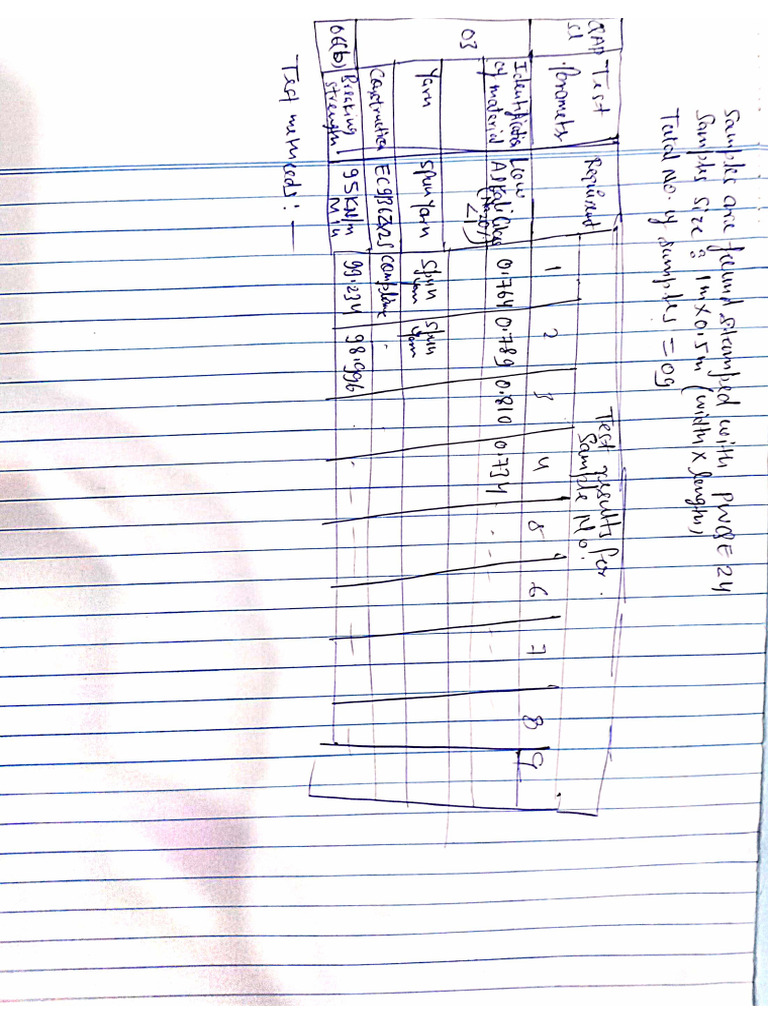 Samples are found stamped with PWQE 24
Samples size : 1m x 0.5m (width x length)
Total No. of samples = 09
Test Parameter Requirement Test results for Sample No.
1 2 3 4 5 6 7 8 9
03 Identification of material Low Alkali Glass (Na2O%) <1 0.764 0.789 0.810 0.734
Yarn Spun Yarn Spun Yarn Spun Yarn
Construction
06(b) Breaking strength 95KN/m Min 99.234 98.996
Test methods : —